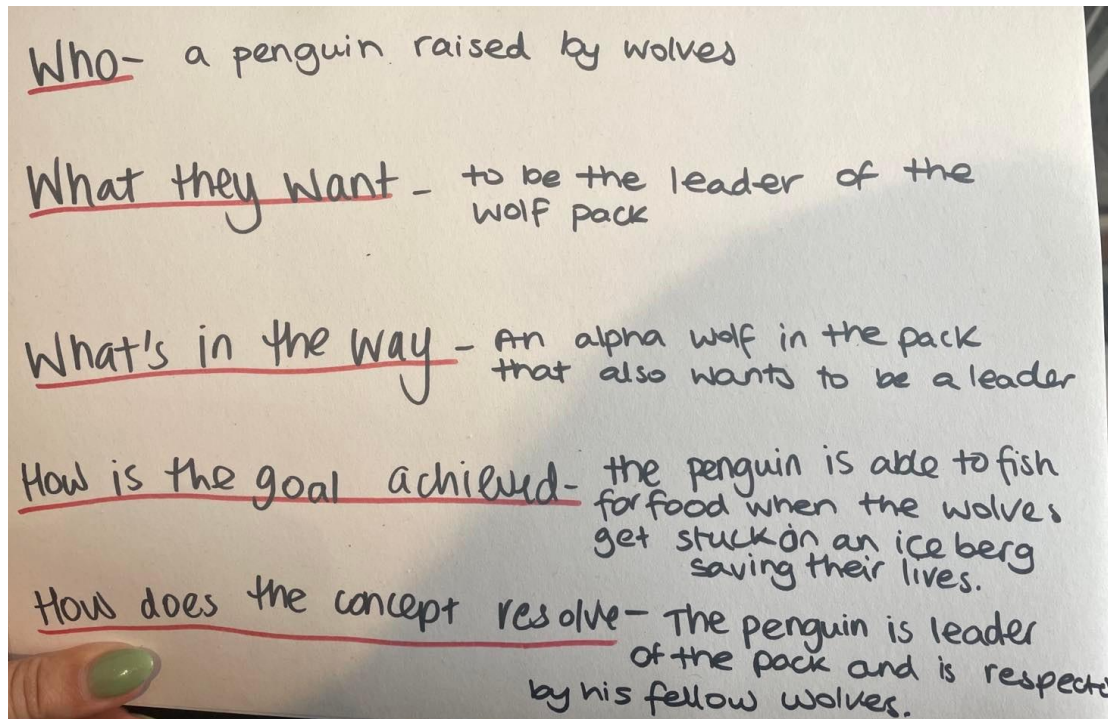 Who- a penguin raised by wolves
What they want - to be the leader of the
wolf pack
What's in the way - An alpha wolf in the pack
that also wants to be a leader
How is the goal achieved- the penguin is able to fish
for food when the wolves
get stuck on an ice berg
saving their lives.
How does the concept resolve- The penguin is leader
of the pack and is respecte
by his fellow wolves.